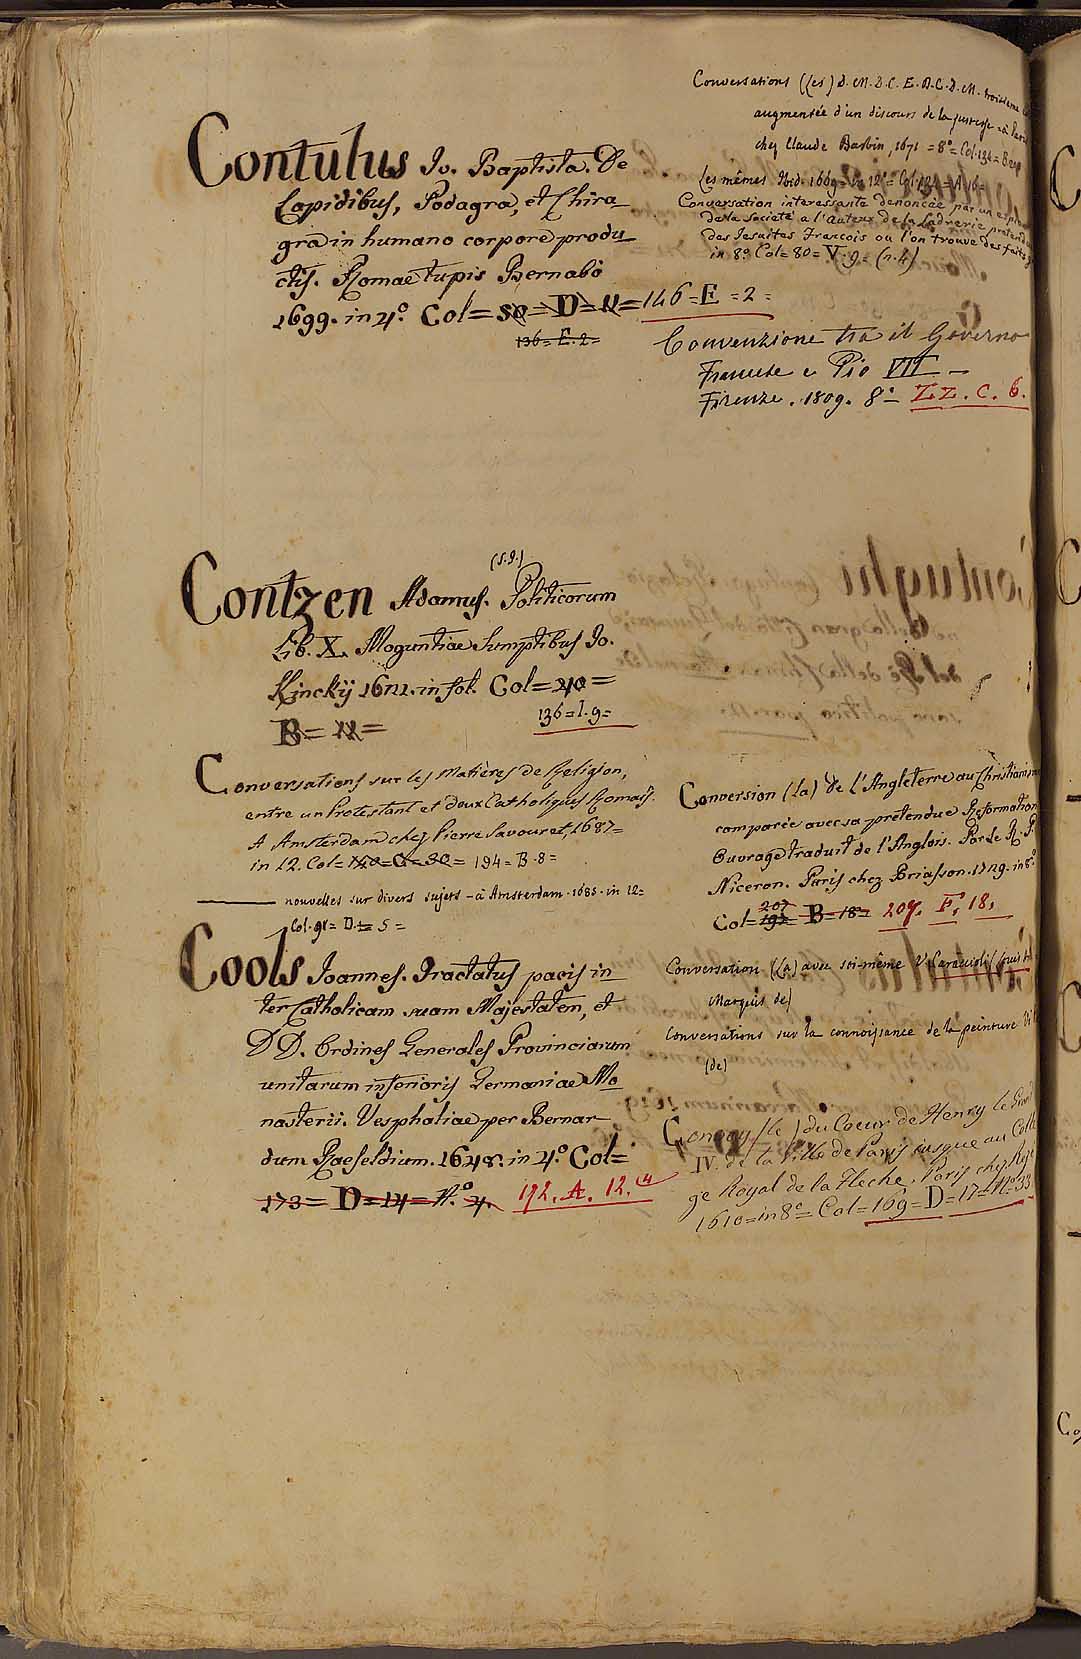 Contulus Jo. Baptista. De
Lapidibus, Podagra, et Chira
gra in humano corpore produ
ctis. Romae typis Bernabò
1699. in 4.º Col = 50 = D = 11 = 146 = E = 2 =
136 = E. 2 =
Contzen Adamus. (S.J.) Politicorum
Lib. X. Moguntiae Sumptibus Jo.
Kinckij 1621. in fol. Col = 40 =
B = 11 =
136 = I. 9 =
Conversations sur les Matières de Religion,
entre un Protestant et doux Catholiques Romais.
A Amsterdam chez Pierre Savouret, 1687 =
in 12. Col = 140 = G = 30 = 194 = B. 8 =
nouvelles sur divers sujets - à Amsterdam. 1685. in 12 =
Col. 91 = D. = 5 =
Cools Joannes. Tractatus pacis in
ter Catholicam suam Majestatem, et
DD. Ordines Generales Provinciarum
unitarum inferioris Germaniae Mo
nasterii. Vesphaliae per Bernar
dum Raesfeldium. 1648. in 4.º Col =
173 = D = 14 = N.º 4. 192. A. 12. (4
Conversations (Les) d. M. D. C. E. D. C. D. M. troisieme
augmentée d'un discours de la justesse - à
chez Claude Barbin, 1671 = 8º = Col. 134 = B
Les mêmes Ibid. 1669 = in 12º = Col. 134 = A. 16 =
Conversation interessante denoncée par un
de la Societé a l'auteur de la Ladrerie
des Jesuites Francois ou l'on trouve des faits
in 8º Col = 80 = V. 9 = (n. 4)
Convenzione tra il Governo
Francese e Pio VII. -
Firenze. 1809. 8º - ZZ. C. 6.
Conversion (La) de l'Angleterre au
comparée avec sa pretendue Reformation
Ouvrage traduit de l'Anglois. Par Le R. P.
Niceron. Paris chez Briasson. 1729. in 8º
207
Col = 193 = B = 18 = 207. F. 18.
Conversation (La) avec soi-même V. Caraccioli (Louis
Marquis de)
Conversations sur la connoissance de la peinture
(de)
Convoy (le) du Coeur de Henry le Grand
IV. de la Ville de Paris jusque au Colle
ge Royal de la Fleche. Paris chez
1610 = in 8º = Col = 169 = D = 17 = N.º 33